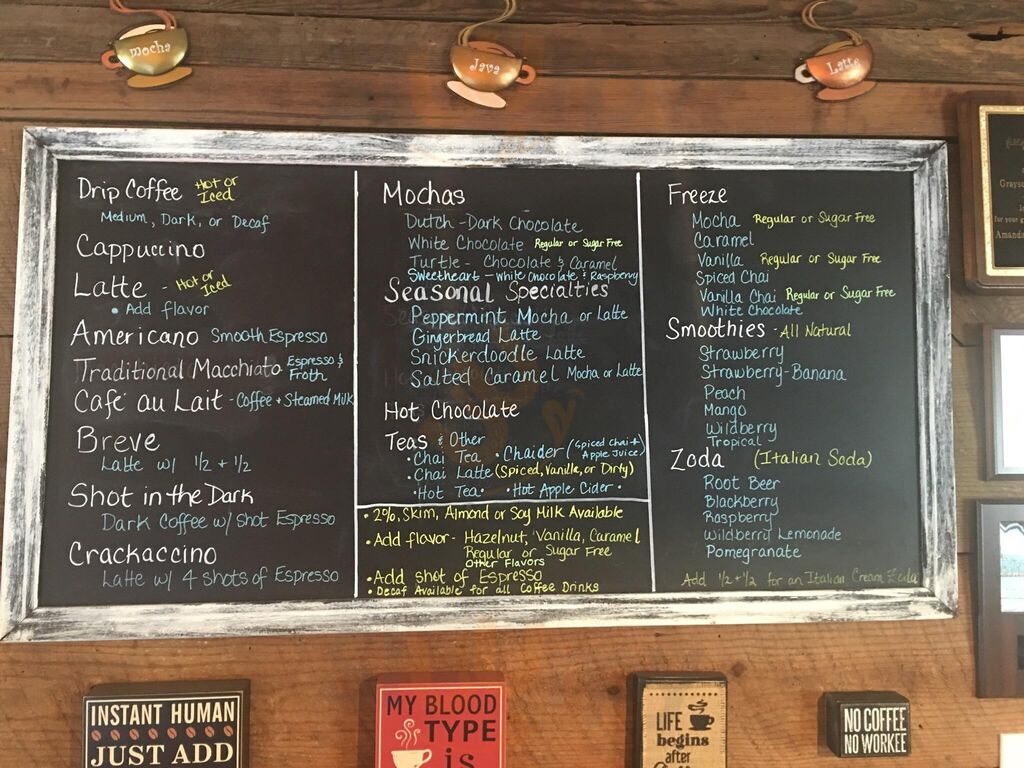 mocha
Java
Latte
Drip Coffee Hot or Iced
Medium, Dark, or Decaf
Cappuccino
Latte - Hot or Iced
• Add flavor
Americano Smooth Espresso
Traditional Macchiato Espresso & Froth
Café au Lait - Coffee + Steamed Milk
Breve
Latte w/ 1/2 + 1/2
Shot in the Dark
Dark Coffee w/ Shot Espresso
Crackaccino
Latte w/ 4 shots of Espresso
Mochas
Dutch - Dark Chocolate
White Chocolate Regular or Sugar Free
Turtle - Chocolate & Caramel
Sweetheart - White Chocolate & Raspberry
Seasonal Specialties
Peppermint Mocha or Latte
Gingerbread Latte
Snickerdoodle Latte
Salted Caramel Mocha or Latte
Hot Chocolate
Teas & Other
• Chai Tea • Chaider (Spiced Chai + Apple Juice)
• Chai Latte (Spiced, Vanilla, or Dirty)
• Hot Tea • Hot Apple Cider •
• 2%, Skim, Almond or Soy Milk Available
• Add flavor - Hazelnut, Vanilla, Caramel
Regular or Sugar Free
Other Flavors
• Add shot of Espresso
• Decaf Available for all Coffee Drinks
Freeze
Mocha Regular or Sugar Free
Caramel
Vanilla Regular or Sugar Free
Spiced Chai
Vanilla Chai Regular or Sugar Free
White Chocolate
Smoothies - All Natural
Strawberry
Strawberry-Banana
Peach
Mango
Wildberry
Tropical
Zoda (Italian Soda)
Root Beer
Blackberry
Raspberry
Wildberry Lemonade
Pomegranate
Add 1/2 + 1/2 for an Italian Cream Zoda
for your
Amanda
INSTANT HUMAN
JUST ADD
MY BLOOD
TYPE
is
LIFE
begins
after
NO COFFEE
NO WORKEE